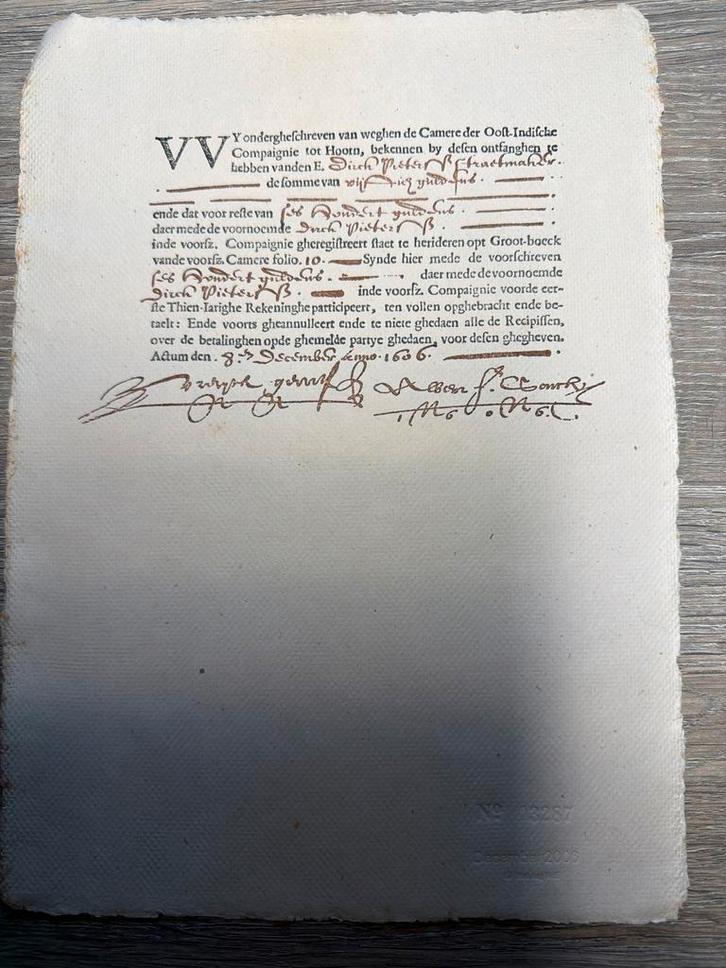 VVY onderghefchreven van weghen de Camere der Ooſt-Indiſche
Compaignie tot Hoorn, bekennen by deſen ontfanghen te
hebben vanden E. Dirck Pieterſz Straetmaker.
de ſomme van vijftich guldens.
ende dat voor reſte van ſes hondert guldens.
daer mede de voornoemde Dirck Pieterſz.
inde voorſz. Compaignie gheregiſtreert ſtaet te herideren opt Groot-boeck
vande voorſz. Camere folio. 10. Synde hier mede de voorſchreven
ſes hondert guldens. daer mede de voornoemde
Dirck Pieterſz. inde voorſz. Compaignie voorde eer-
ſte Thien-Iarighe Rekeninghe participeert, ten vollen opghebracht ende be-
taelt: Ende voorts gheannulleert ende te niete ghedaen alle de Recipiſſen,
over de betalinghen opde ghemelde partye ghedaen, voor deſen ghegheven.
Actum den. 8.en December anno. 1606.
Nº 3287
December 2006